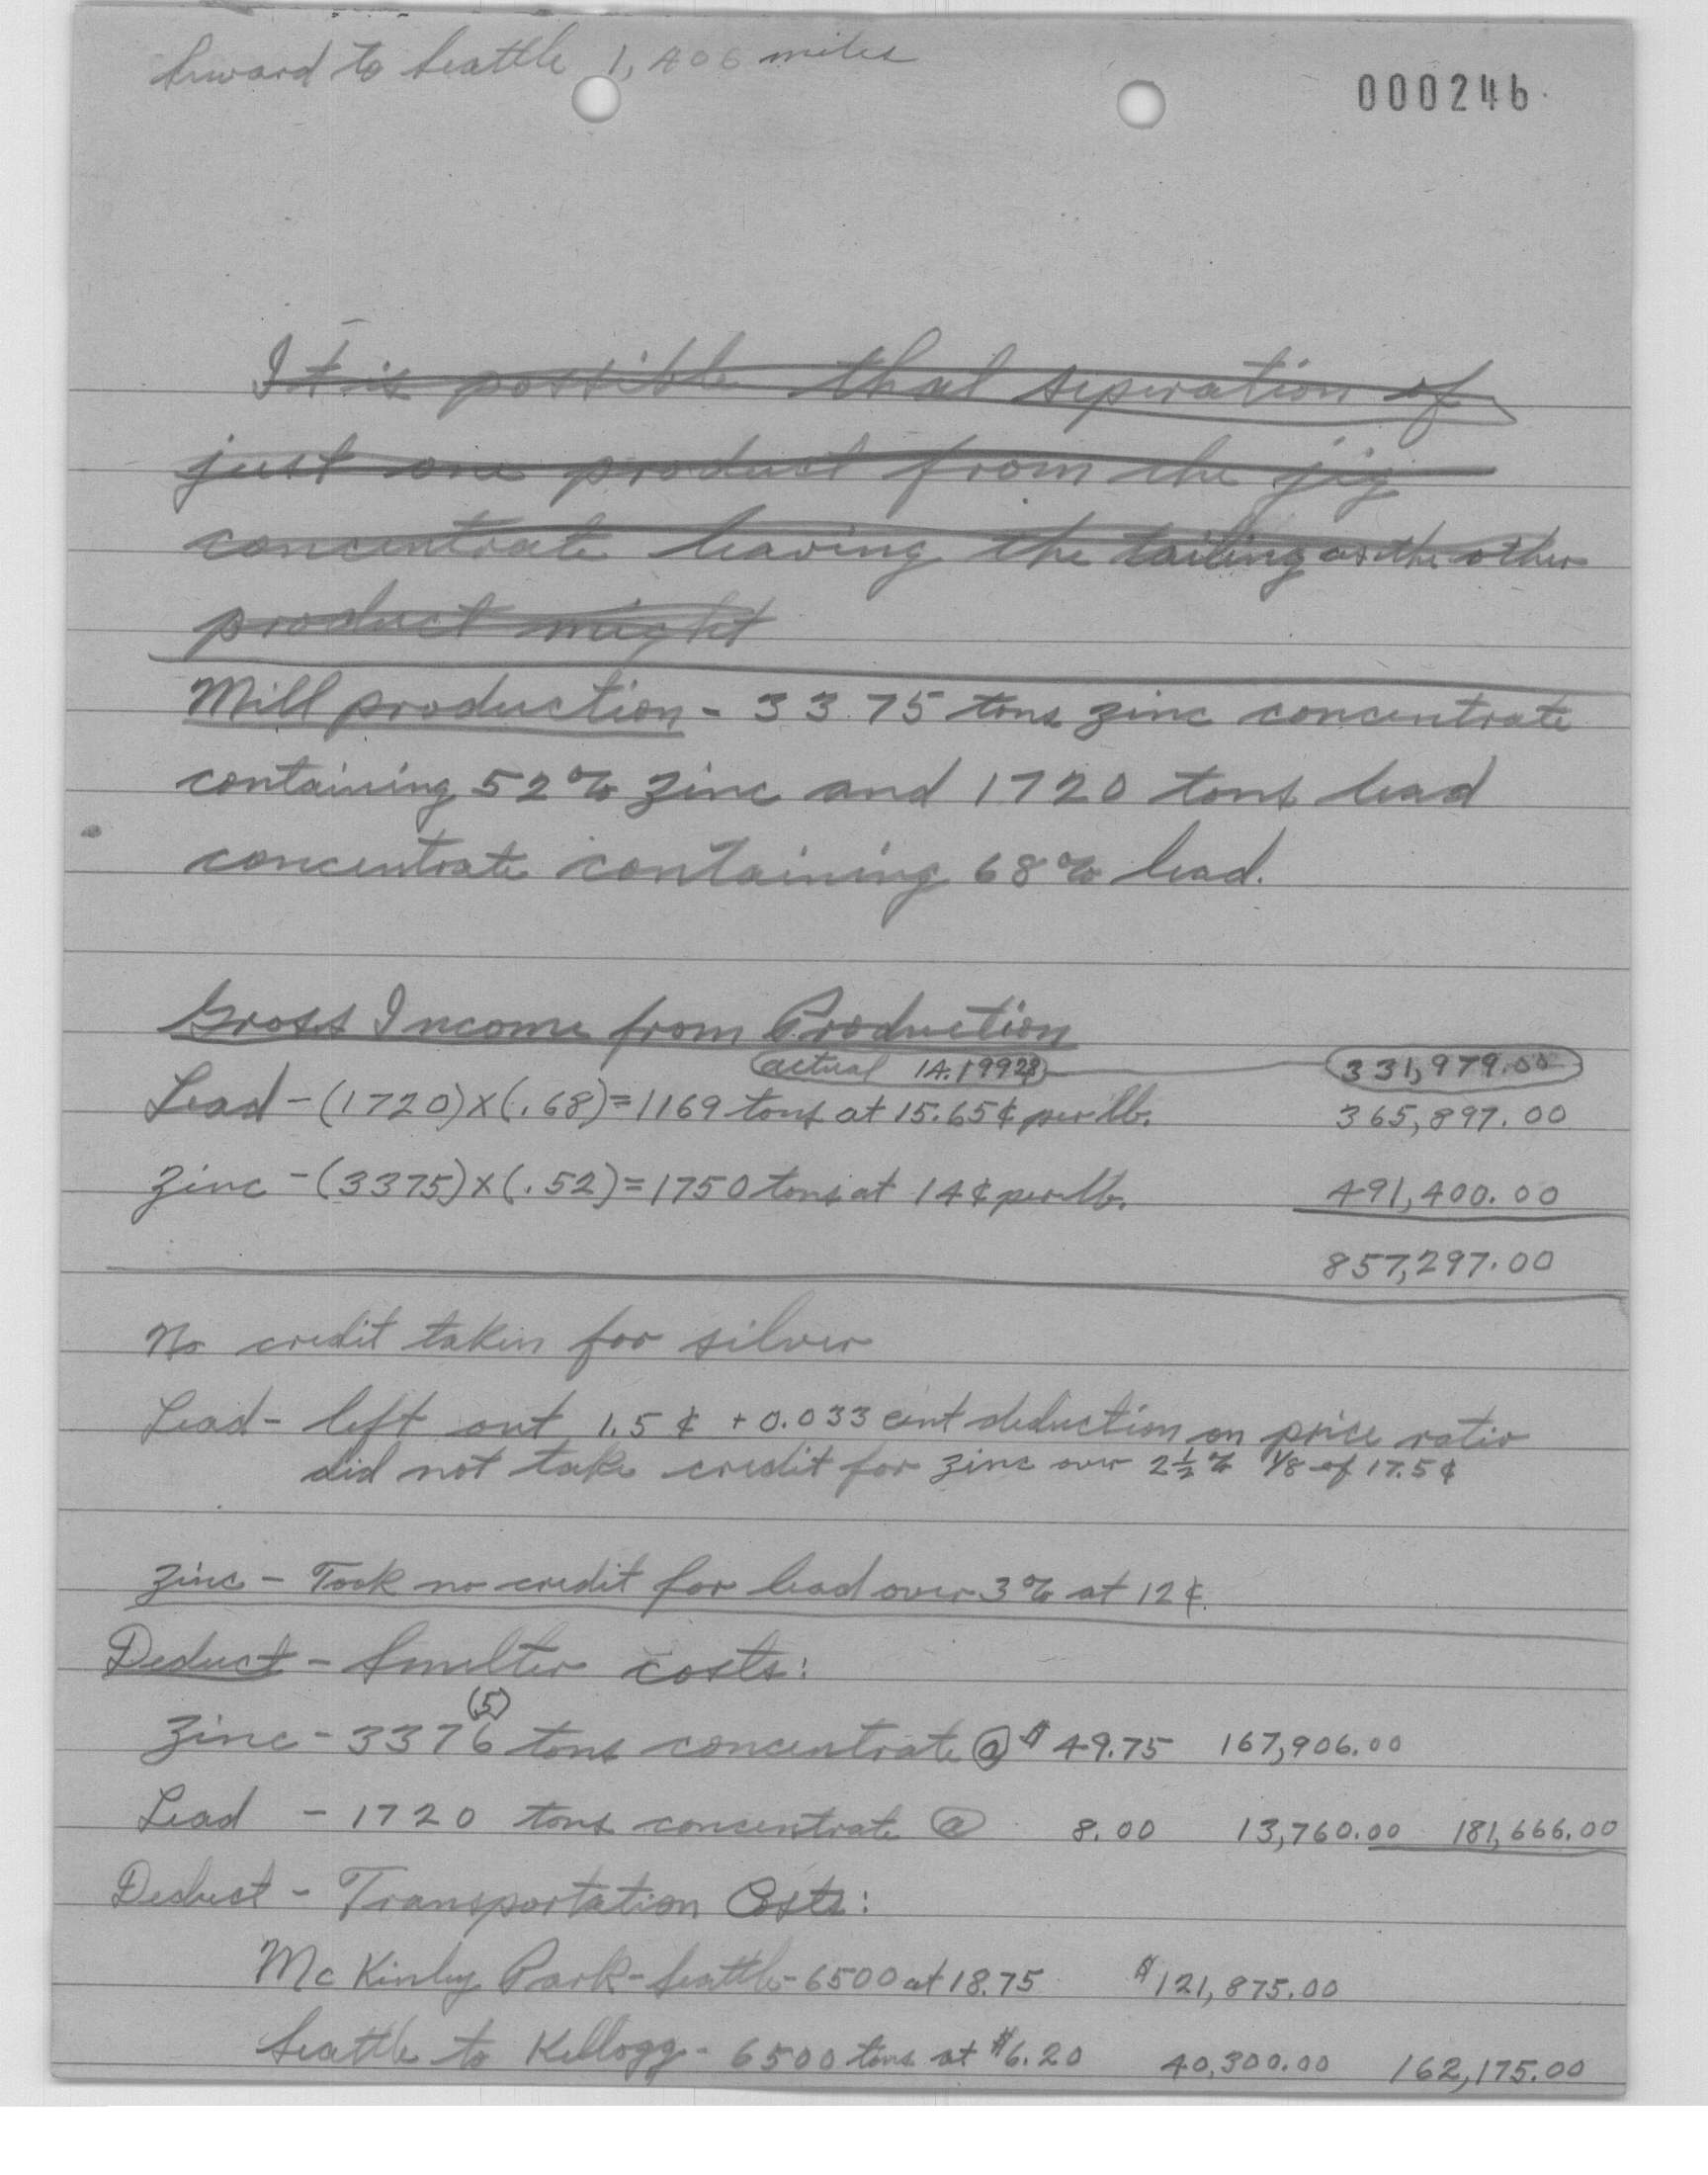 Seward to Seattle 1,406 miles
000246
It is possible that seperation of
just one product from the jig
concentrate leaving the tailing as the other
product might
Mill production - 3375 tons zinc concentrate
containing 52% zinc and 1720 tons lead
concentrate containing 68% lead.
Gross Income from Production
actual 14.1992 331,979.00
Lead - (1720) x (.68) = 1169 tons at 15.65¢ per lb. 365,897.00
Zinc - (3375) x (.52) = 1750 tons at 14¢ per lb. 491,400.00
857,297.00
No credit taken for silver
Lead - left out 1.5¢ + 0.033 cent deduction on price ratio
did not take credit for zinc over 2½% 1/8 of 17.5¢
Zinc - Took no credit for lead over 3% at 12¢.
Deduct - Smelter costs:
(5)
Zinc - 3376 tons concentrate @ $49.75 167,906.00
Lead - 1720 tons concentrate @ 8.00 13,760.00 181,666.00
Deduct - Transportation Costs:
McKinley Park - Seattle - 6500 at 18.75 $121,875.00
Seattle to Kellogg - 6500 tons at $6.20 40,300.00 162,175.00